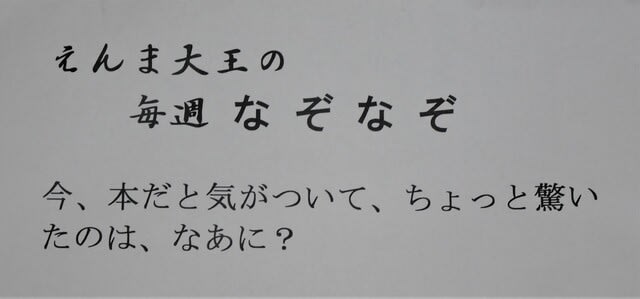 えんま大王の
毎週なぞなぞ
今、本だと気がついて、ちょっと驚い
たのは、なあに？